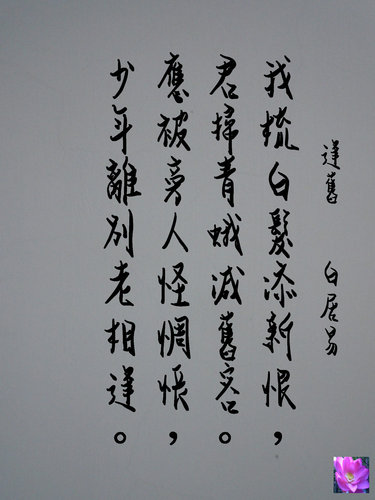 逢舊 白居易
我梳白髮添新恨，
君掃青蛾減舊容。
應被旁人怪惆悵，
少年離別老相逢。